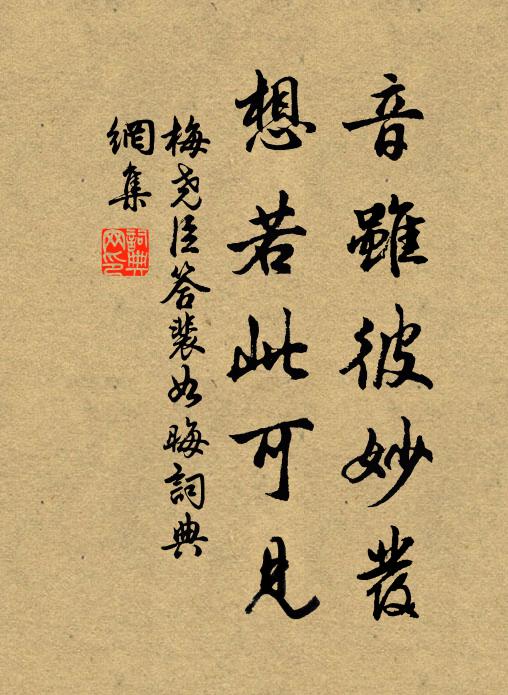 音雖彼妙發
想若此可見
梅堯臣答裴如晦詞典
網集
詞典
网印